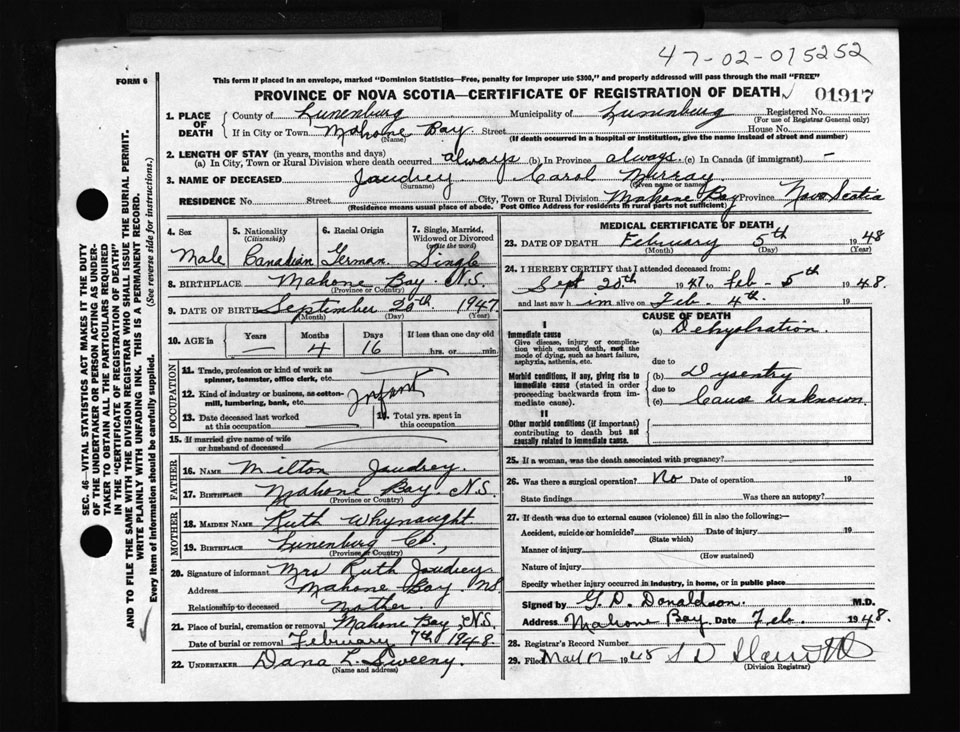 47-02-015252
FORM 6
This form if placed in an envelope, marked "Dominion Statistics—Free, penalty for improper use $300," and properly addressed will pass through the mail "FREE"
PROVINCE OF NOVA SCOTIA—CERTIFICATE OF REGISTRATION OF DEATH 01917
1. PLACE OF DEATH County of Lunenburg Municipality of Lunenburg Registered No.
(For use of Registrar General only)
If in City or Town Mahone Bay Street House No.
(Name) (If death occurred in a hospital or institution, give the name instead of street and number)
2. LENGTH OF STAY (in years, months and days)
(a) In City, Town or Rural Division where death occurred always (b) In Province always. (c) In Canada (if immigrant) —
3. NAME OF DECEASED Jaudrey Carol Murray.
(Surname) (Given name or names)
RESIDENCE No. Street City, Town or Rural Division Mahone Bay Province Nova Scotia
(Residence means usual place of abode. Post Office Address for residents in rural parts not sufficient)
4. Sex 5. Nationality (Citizenship) 6. Racial Origin 7. Single, Married, Widowed or Divorced (write the word)
Male Canadian German Single
8. BIRTHPLACE Mahone Bay N.S.
(Province or Country)
9. DATE OF BIRTH September 20th 1947
(Month) (Day) (Year)
10. AGE in Years Months Days If less than one day old
— 4 16 hrs. or min.
OCCUPATION
11. Trade, profession or kind of work as spinner, teamster, office clerk, etc.
12. Kind of industry or business, as cotton-mill, lumbering, bank, etc. Infant
13. Date deceased last worked at this occupation 14. Total yrs. spent in this occupation
15. If married give name of wife or husband of deceased
FATHER
16. NAME Milton Jaudrey.
17. BIRTHPLACE Mahone Bay N.S.
(Province or Country)
MOTHER
18. MAIDEN NAME Ruth Whynaught.
19. BIRTHPLACE Lunenburg Co.,
(Province or Country)
20. Signature of informant Mrs Ruth Jaudrey
Address Mahone Bay NS
Relationship to deceased Mother
21. Place of burial, cremation or removal Mahone Bay, N.S.
Date of burial or removal February 7th 1948.
22. UNDERTAKER Dana L. Sweeny.
(Name and address)
MEDICAL CERTIFICATE OF DEATH
23. DATE OF DEATH February 5th 1948
(Month) (Day) (Year)
24. I HEREBY CERTIFY that I attended deceased from:
Sept 20th 1947 to Feb - 5th 1948.
and last saw him alive on Feb - 4th. 19
CAUSE OF DEATH
I
Immediate cause (a) Dehydration.
Give disease, injury or complication which caused death, not the mode of dying, such as heart failure, asphyxia, asthenia, etc.
due to
Morbid conditions, if any, giving rise to immediate cause (stated in order proceeding backwards from immediate cause). (b) Dysentry
due to
(c) Cause Unknown.
II
Other morbid conditions (if important) contributing to death but not causally related to immediate cause.
25. If a woman, was the death associated with pregnancy?
26. Was there a surgical operation? No Date of operation 19
State findings Was there an autopsy?
27. If death was due to external causes (violence) fill in also the following:—
Accident, suicide or homicide? Date of injury 19
(State which)
Manner of injury
(How sustained)
Nature of injury
Specify whether injury occurred in industry, in home, or in public place
Signed by G. D. Donaldson. M.D.
Address Mahone Bay. Date Feb. 1948.
28. Registrar's Record Number
29. Filed 19
(Division Registrar)
SEC. 46—VITAL STATISTICS ACT MAKES IT THE DUTY
OF THE UNDERTAKER OR PERSON ACTING AS UNDER-
TAKER TO OBTAIN ALL THE PARTICULARS REQUIRED
IN THE "CERTIFICATE OF REGISTRATION OF DEATH"
AND TO FILE THE SAME WITH THE DIVISION REGISTRAR WHO SHALL ISSUE THE BURIAL PERMIT.
WRITE PLAINLY WITH UNFADING INK. THIS IS A PERMANENT RECORD.
Every item of information should be carefully supplied. (See reverse side for instructions.)